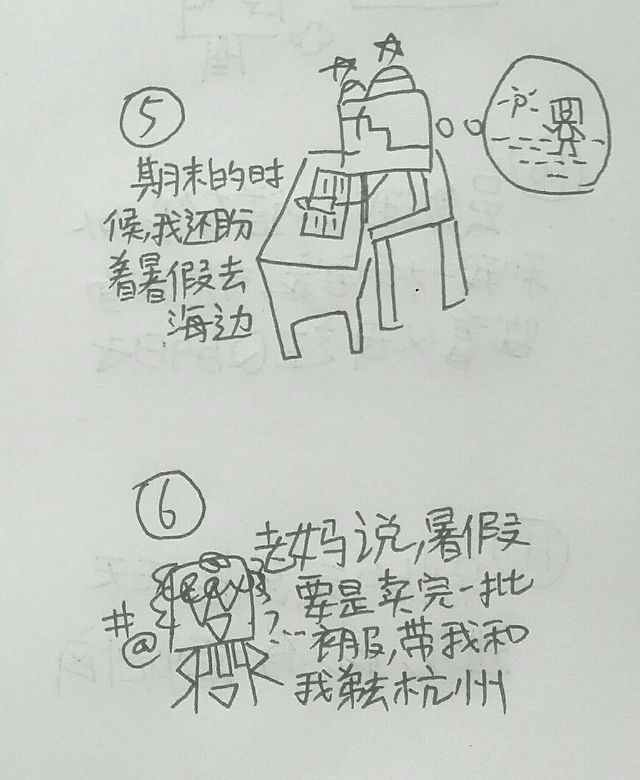 5
期末的时
候,我还盼
着暑假去
海边
6
老妈说,暑假
要是卖完一批
衣服,带我和
我弟去杭州
#
@
?...